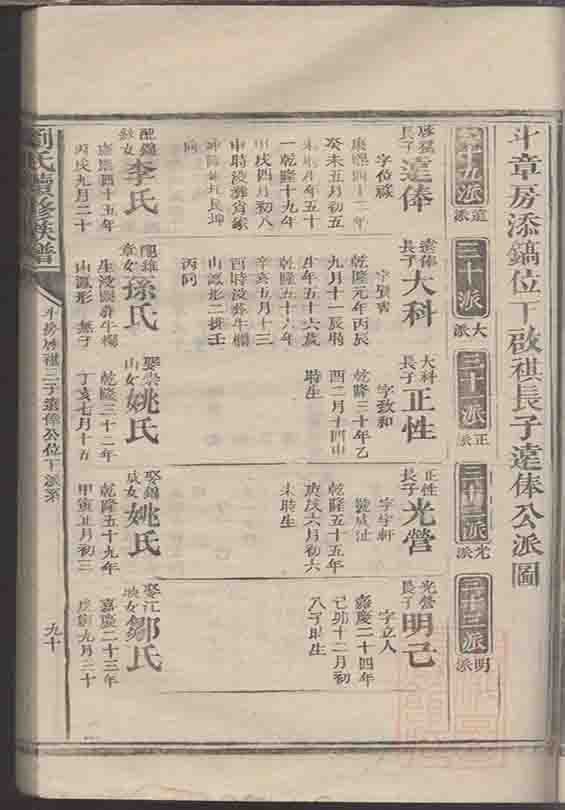 斗章房添鎬位下啟祺長子遠俸公派圖
二十九派
遠派
三十派
大派
三十一派
正派
三十二派
光派
三十三派
明派
長子遠俸
字位祿
康熙四十二年
癸未五月初五
未時生年五十
一乾隆十九年
甲戌四月初八
申時沒
遠俸長子大科
乾隆元年丙辰
九月十一辰時
生年五十六歲
乾隆五十六年
辛亥五月十三
酉時沒葬牛欄
山鳳形二排壬
丙向
大科長子正性
字致和
乾隆三十年乙
酉二月十四申
時生
正性長子光營
字宇軒
號成址
乾隆五十五年
庚戌六月初六
未時生
光營長子明己
字立人
嘉慶二十四年
己卯十二月初
八子時生
配錦
女李氏
康熙四十五年
丙戌九月二十
配雒
章女孫氏
生沒俱葬牛欄
山鳳形 無子
娶榮
山女姚氏
乾隆三十二年
丁亥七月十五
娶錦
成女姚氏
乾隆五十九年
甲寅正月初三
娶江
女鄒氏
嘉慶二十三年
戊寅九月二十
劉氏續修族譜
遠俸公位下派系
九十